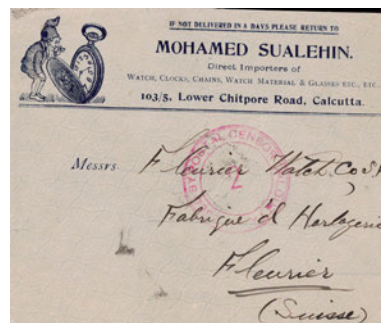 IF NOT DELIVERED IN 8 DAYS PLEASE RETURN TO
MOHAMED SUALEHIN.
Direct Importers of
WATCH, CLOCKS, CHAINS, WATCH MATERIAL & GLASSES ETC., ETC.
103/5, Lower Chitpore Road, Calcutta.
POSTAL CENSOR
Messrs Fleurier Watch Co S.
Fabrique d' Horlogerie
Fleurier
(Suisse)